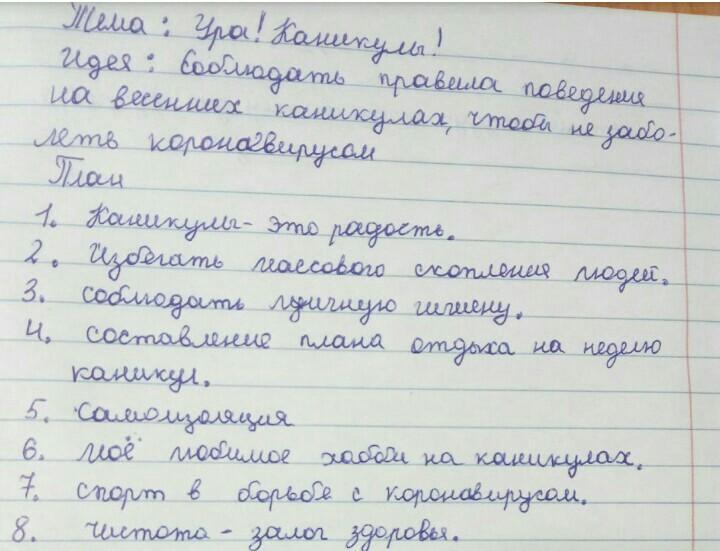 Тема: Ура! Каникулы!
Идея: Соблюдать правила поведения
на весенних каникулах, чтобы не забо-
леть коронавирусом
План
1. Каникулы- это радость.
2. Избегать массового скопления людей.
3. Соблюдать личную гигиену.
4. Составление плана отдыха на неделю
каникул.
5. Самоизоляция
6. Моё любимое хобби на каникулах.
7. Спорт в борьбе с коронавирусом.
8. Чистота - залог здоровья.